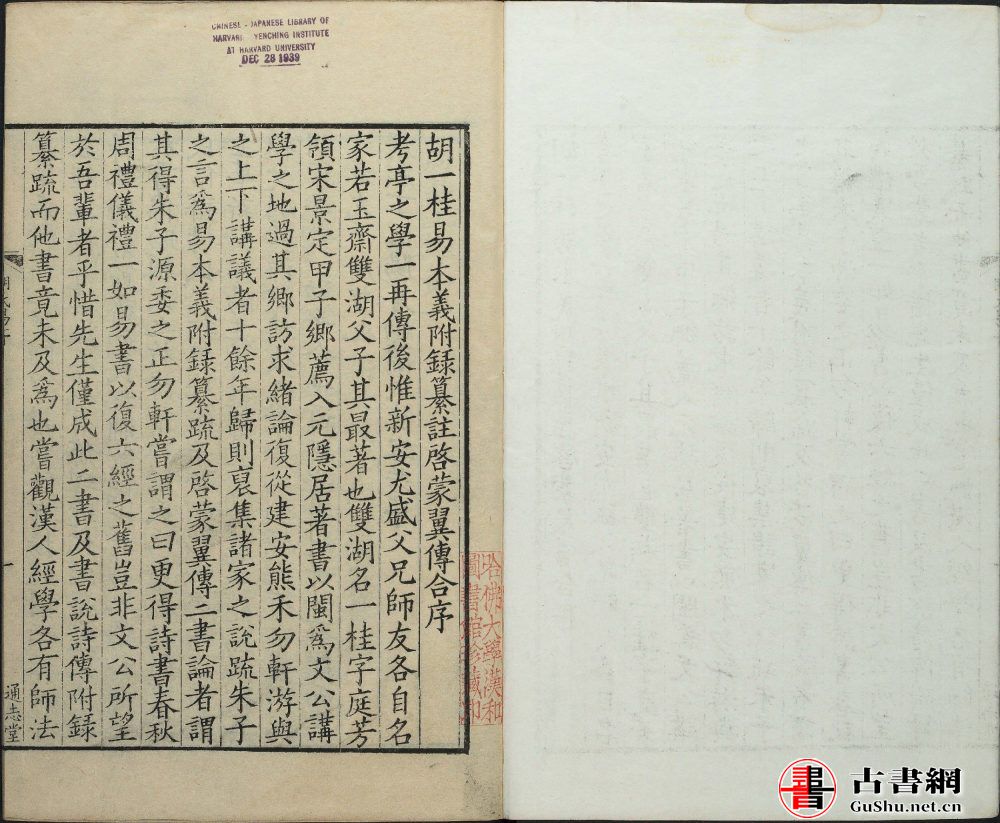 CHINESE - JAPANESE LIBRARY OF
HARVARD YENCHING INSTITUTE
AT HARVARD UNIVERSITY
DEC 28 1939
胡一桂易本義附録纂註啓蒙翼傳合序
考亭之學一再傳後惟新安尤盛父兄師友各自名
家若玉齋雙湖父子其最著也雙湖名一桂字庭芳
領宋景定甲子鄉薦入元隱居著書以閩爲文公講
學之地過其鄉訪求緒論復從建安熊禾勿軒游與
之上下講議者十餘年歸則裒集諸家之說疏朱子
之言爲易本義附録纂疏及啓蒙翼傳二書論者謂
其得朱子源委之正勿軒嘗謂之曰更得詩書春秋
周禮儀禮一如易書以復六經之舊豈非文公所望
於吾輩者乎惜先生僅成此二書及書說詩傳附録
纂疏而他書竟未及爲也嘗觀漢人經學各有師法
一
通志堂
哈佛大學漢和
圖書館珍藏印
古書網
GuShu.net.cn